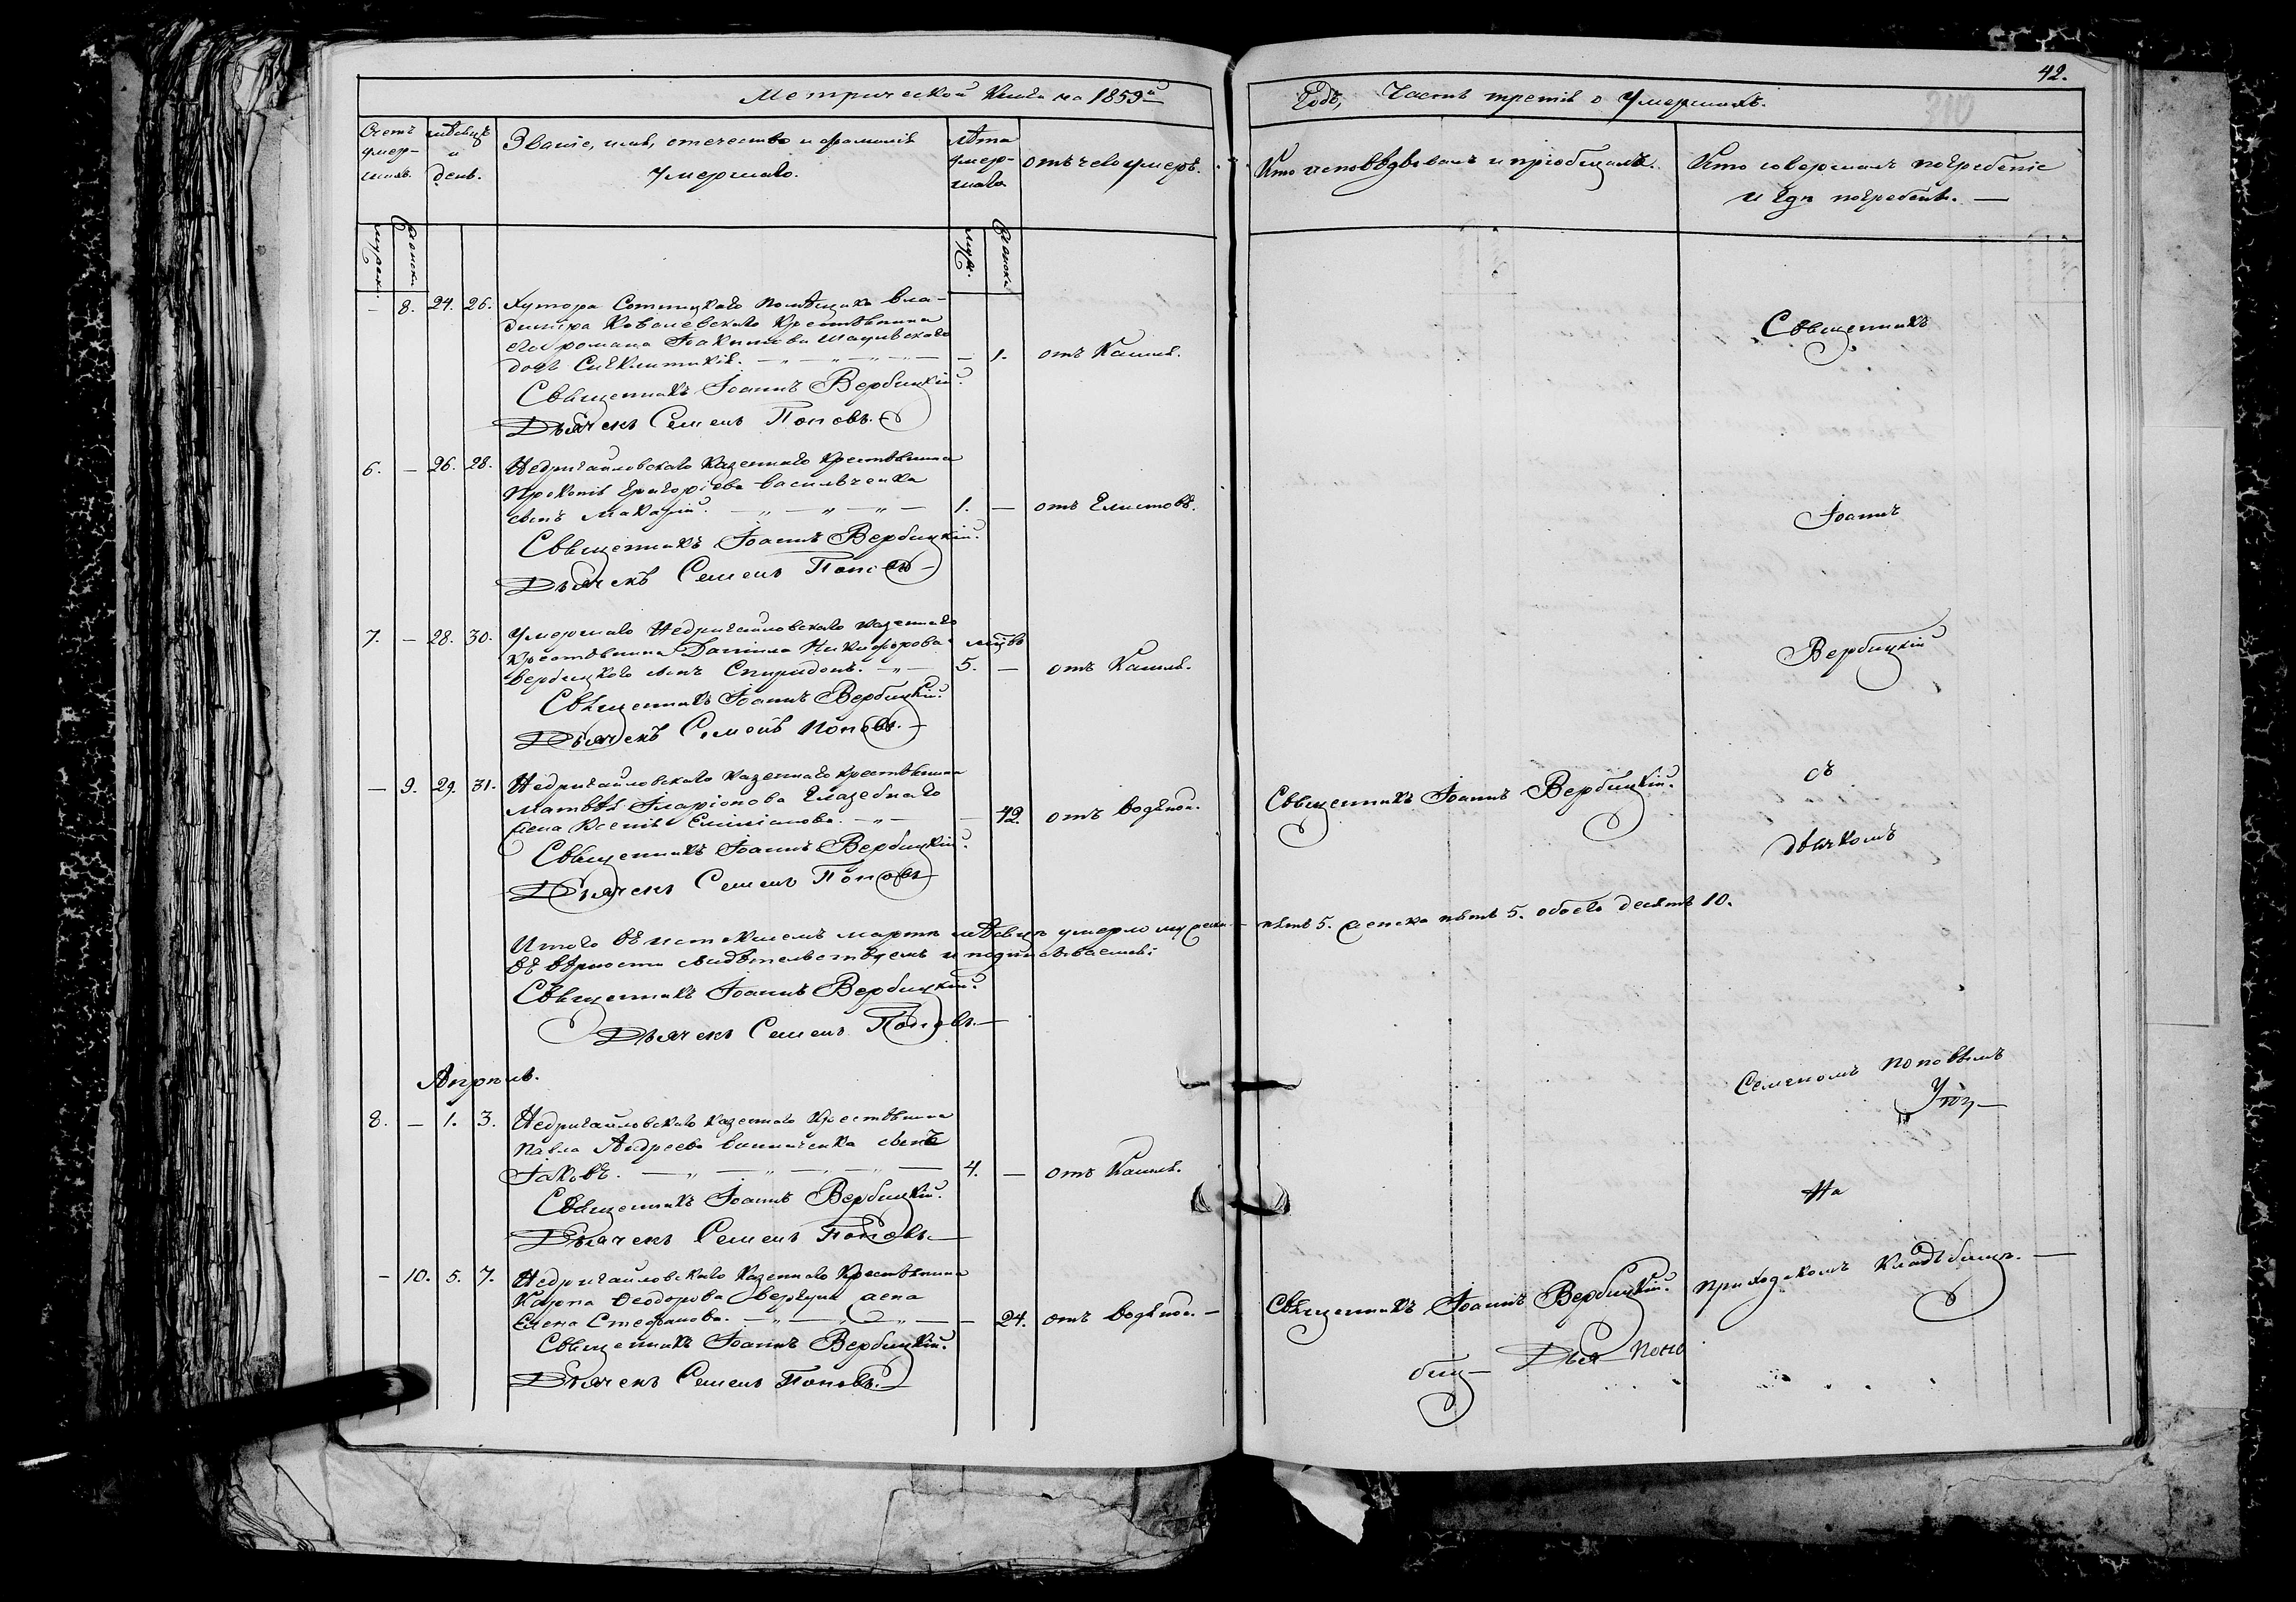 42.
Метрической Книги на 1859й
Годъ, Часть третія о Умершихъ.
Счетъ умер-шихъ.
мѣсяцъ и день.
Званіе, имя, отечество и фамилія
Умершаго.
Лѣта умер-шаго
отъ чего умеръ.
Кто исповѣдывалъ и пріобщалъ.
Кто совершалъ погребеніе
и гдѣ погребенъ. —
мужеск.
женски
муж.
женски
— 8. 24. 26. Хутора Помѣщика Вла-
диміра Ковалевскаго Крестьянина
Романа
дочь — 1. отъ Кашля.
Священникъ Іоаннъ Вербицкій.
Дьячекъ Семенъ Поповъ.
6. — 26. 28. Недригайловскаго казеннаго крестьянина
Прокопія Григоріева Васильченка
сынъ Макарій. 1. — отъ Глистовъ.
Священникъ Іоаннъ Вербицкій.
Дьячекъ Семенъ Поповъ
7. — 28. 30. Умершаго Недригайловскаго казеннаго
Крестьянина Даніила Никифорова мцвъ
Вербицкого сынъ Спиридонъ. 5. — отъ Кашля.
Священникъ Іоаннъ Вербицкій.
Дьячекъ Семенъ Поповъ.
— 9. 29. 31. Недригайловскаго казеннаго крестьянина
Матвѣя Иларіонова
жена Ксенія — 42. отъ водяной.
Священникъ Іоаннъ Вербицкій.
Дьячекъ Семенъ Поповъ
Итого въ истекшемъ мартѣ мѣсяцѣ умерло мужеска — пять 5. женска пять 5. обоего десять 10.
въ вѣрности свидѣтельствуемъ и подписываемся:
Священникъ Іоаннъ Вербицкій.
Дьячекъ Семенъ Поповъ.
Апрѣль.
8. — 1. 3. Недригайловскаго казеннаго Крестьянина
Павла Андреева сынъ
Іаковъ. 4. — отъ Кашля.
Священникъ Іоаннъ Вербицкій.
Дьячекъ Семенъ Поповъ.
— 10. 5. 7. Недригайловскаго Казеннаго Крестьянина
Карпа Ѳеодорова жена
Елена Стефанова. — 24. отъ водяной. —
Священникъ Іоаннъ Вербицкій.
Дьячекъ Семенъ Поповъ.
Священникъ Іоаннъ Вербицкій.
Священникъ Іоаннъ Вербицкій.
биц—
Дья Попо
Священникъ
Іоаннъ
Вербицкій
съ
дьячкомъ
Семеномъ Поповымъ
На
приходскомъ Кладбищѣ. —